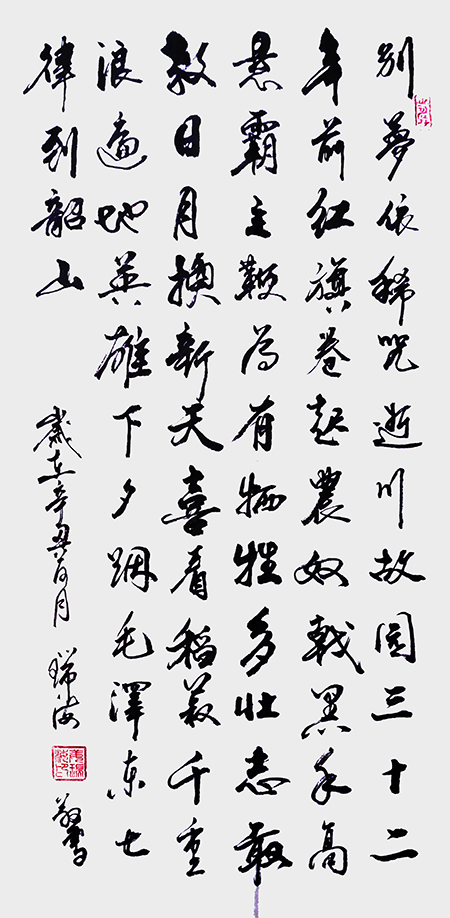 别夢依稀咒逝川故園三十二
年前红旗卷起農奴戟黑手高
悬霸主鞭为有牺牲多壮志敢
教日月換新天喜看稻菽千重
浪遍地英雄下夕烟毛澤东七
律到韶山
歲在辛丑月瑞海敬書